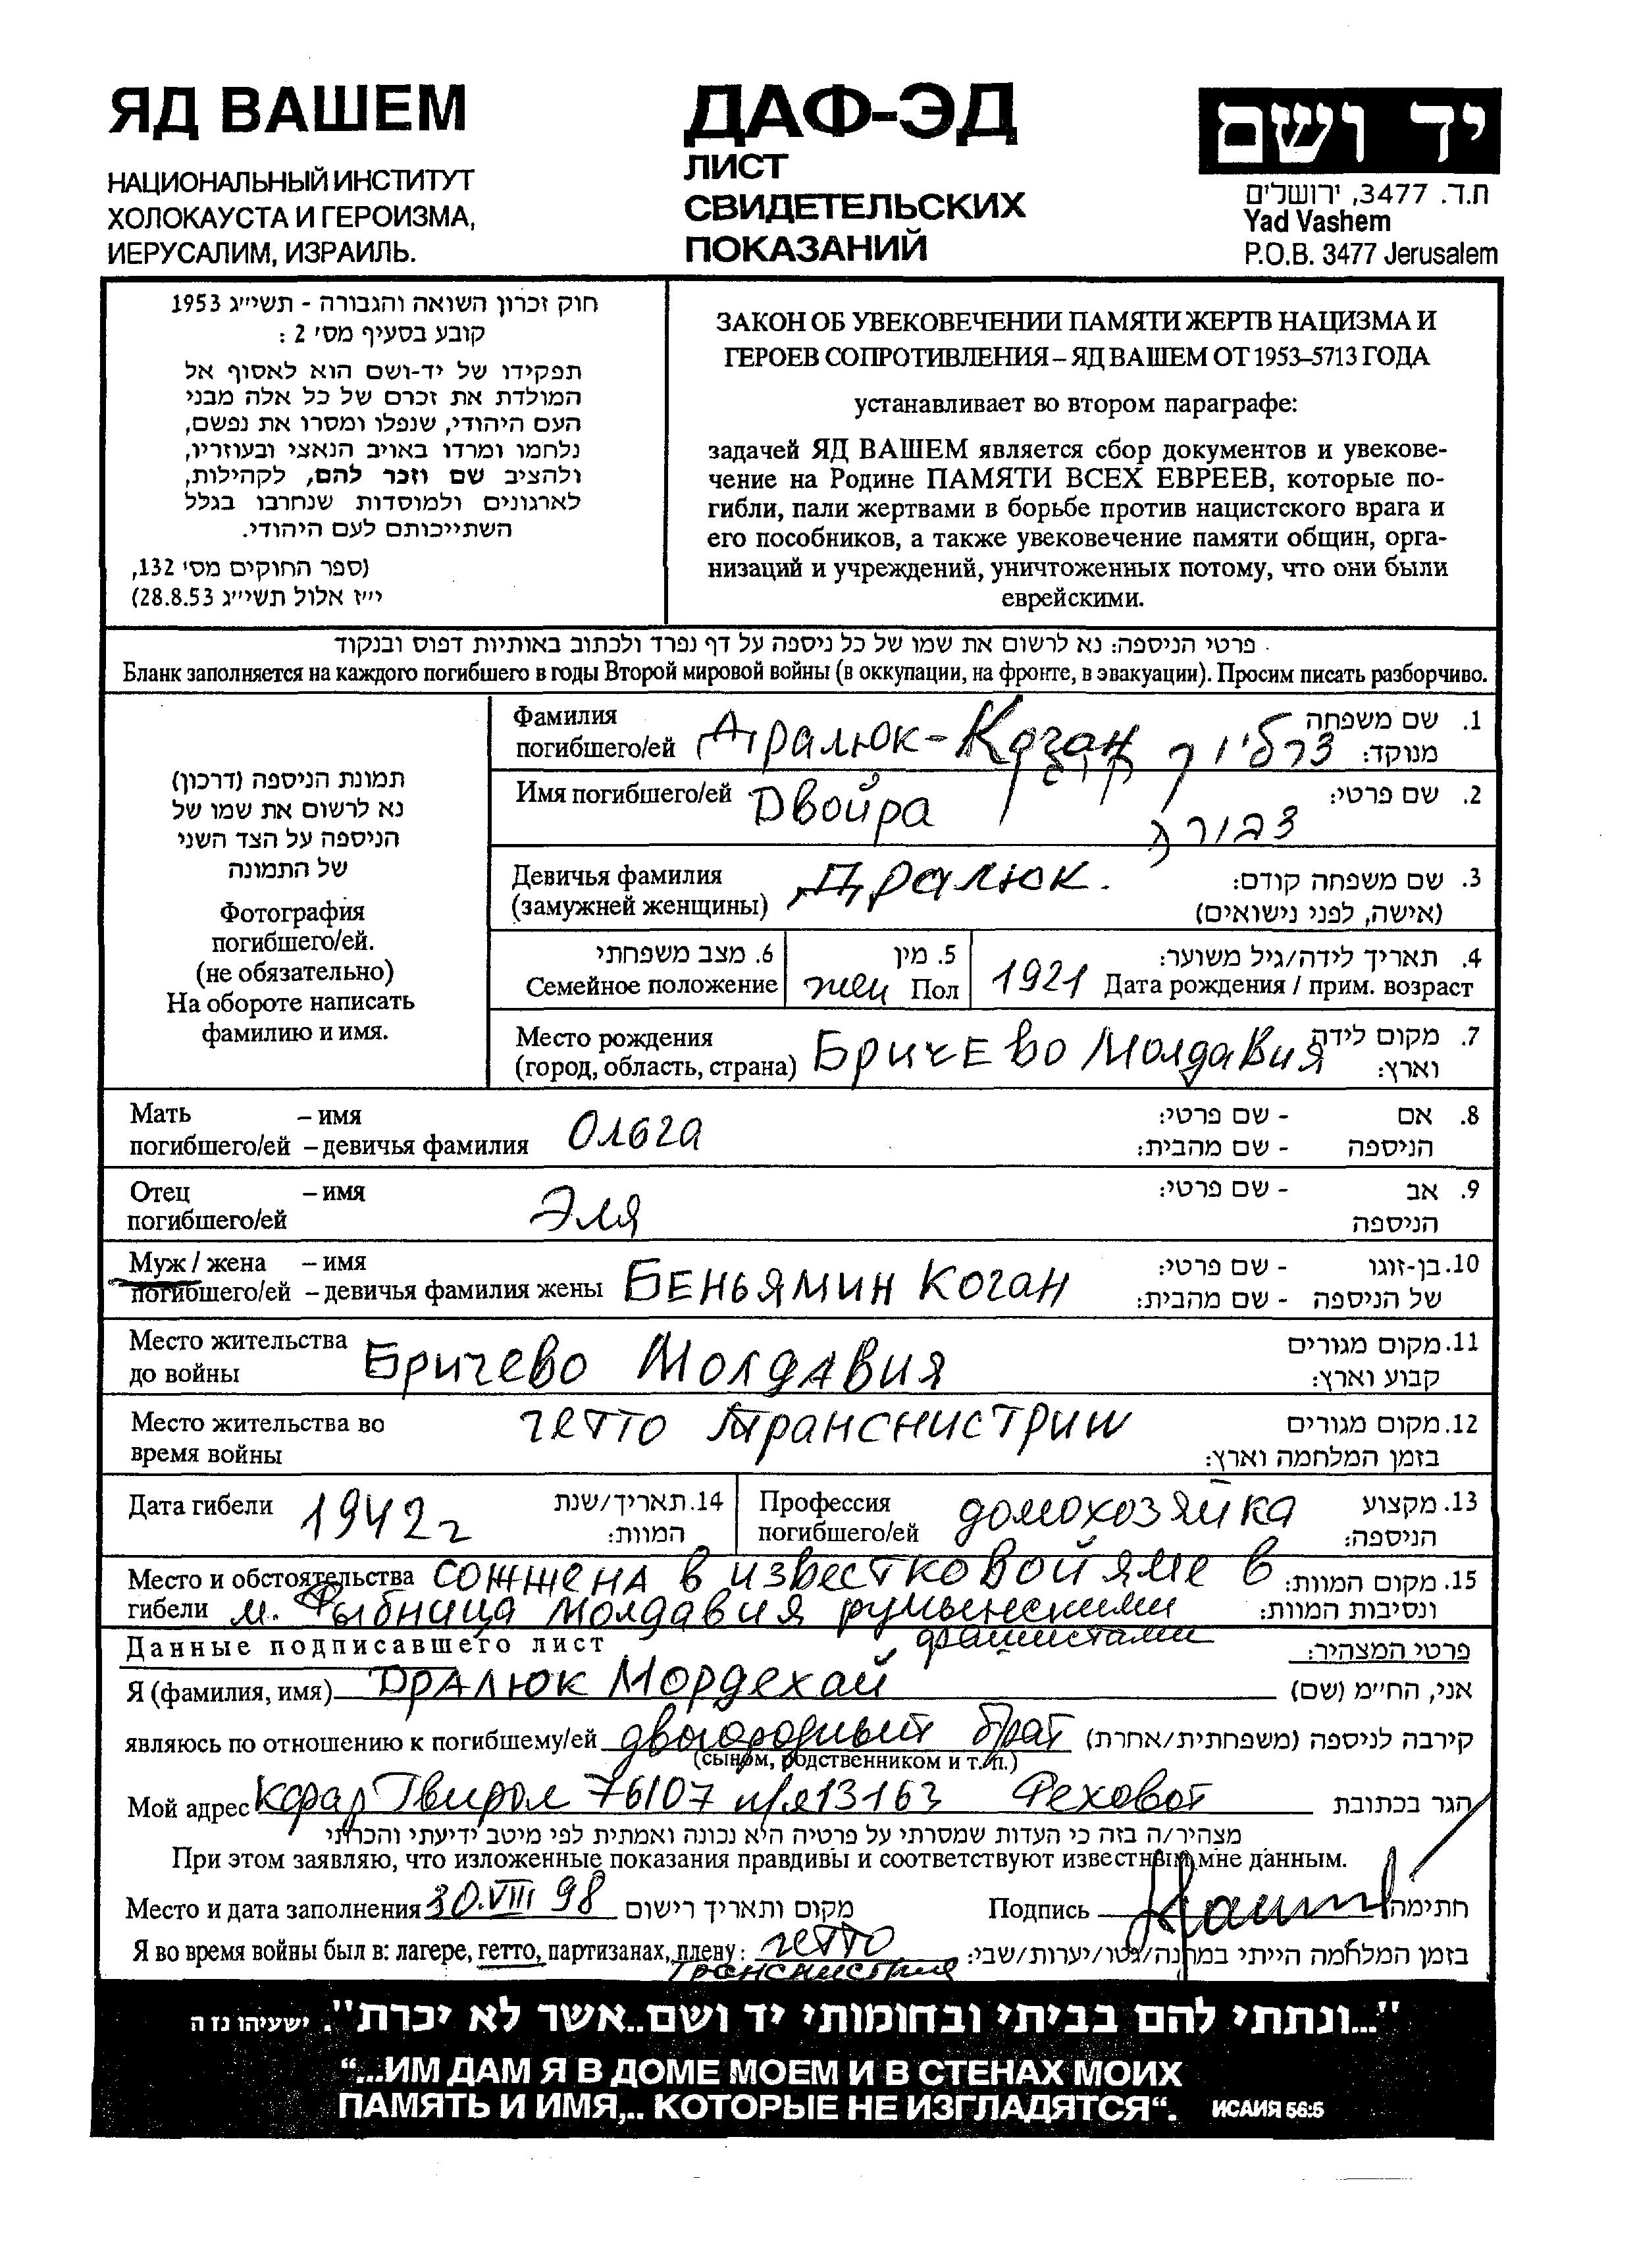 ЯД ВАШЕМ
НАЦИОНАЛЬНЫЙ ИНСТИТУТ
ХОЛОКАУСТА И ГЕРОИЗМА,
ИЕРУСАЛИМ, ИЗРАИЛЬ.
ДАФ-ЭД
ЛИСТ
СВИДЕТЕЛЬСКИХ
ПОКАЗАНИЙ
יד ושם
ת.ד. 3477, ירושלים
Yad Vashem
P.O.B. 3477 Jerusalem
חוק זכרון השואה והגבורה - תשי״ג 1953
קובע בסעיף מס׳ 2 :
תפקידו של יד-ושם הוא לאסוף אל
המולדת את זכרם של כל אלה מבני
העם היהודי, שנפלו ומסרו את נפשם,
נלחמו ומרדו באויב הנאצי ובעוזריו,
ולהציב שם וזכר להם, לקהילות,
לארגונים ולמוסדות שנחרבו בגלל
השתייכותם לעם היהודי.
(ספר החוקים מס׳ 132,
י״ז אלול תשי״ג 28.8.53)
ЗАКОН ОБ УВЕКОВЕЧЕНИИ ПАМЯТИ ЖЕРТВ НАЦИЗМА И
ГЕРОЕВ СОПРОТИВЛЕНИЯ – ЯД ВАШЕМ ОТ 1953–5713 ГОДА
устанавливает во втором параграфе:
задачей ЯД ВАШЕМ является сбор документов и увекове-
чение на Родине ПАМЯТИ ВСЕХ ЕВРЕЕВ, которые по-
гибли, пали жертвами в борьбе против нацистского врага и
его пособников, а также увековечение памяти общин, орга-
низаций и учреждений, уничтоженных потому, что они были
еврейскими.
פרטי הניספה: נא לרשום את שמו של כל ניספה על דף נפרד ולכתוב באותיות דפוס ובנקוד
Бланк заполняется на каждого погибшего в годы Второй мировой войны (в оккупации, на фронте, в эвакуации). Просим писать разборчиво.
תמונת הניספה (דרכון)
נא לרשום את שמו של
הניספה על הצד השני
של התמונה
Фотография
погибшего/ей.
(не обязательно)
На обороте написать
фамилию и имя.
Фамилия
погибшего/ей Дралюк-Коган דרליוק קוגן
1. שם משפחה
מנוקד:
Имя погибшего/ей Двойра דבורה 2. שם פרטי:
Девичья фамилия
(замужней женщины) Дралюк.
3. שם משפחה קודם:
(אישה, לפני נישואים)
6. מצב משפחתי
Семейное положение
5. מין
жен Пол
4. תאריך לידה/גיל משוער:
1921 Дата рождения / прим. возраст
Место рождения
(город, область, страна) Бричево Молдавия
7. מקום לידה
וארץ:
Мать – имя
погибшего/ей – девичья фамилия Ольга
8. אם - שם פרטי:
הניספה - שם מהבית:
Отец – имя
погибшего/ей Эля
9. אב - שם פרטי:
הניספה
Муж / жена – имя
погибшего/ей – девичья фамилия жены Беньямин Коган
10. בן-זוגו - שם פרטי:
של הניספה - שם מהבית:
Место жительства
до войны Бричево Молдавия
11. מקום מגורים
קבוע וארץ:
Место жительства во
время войны гетто Транснистрии
12. מקום מגורים
בזמן המלחמה וארץ:
Дата гибели 1942г
14. תאריך/שנת
המוות:
Профессия
погибшего/ей домохозяйка
13. מקצוע
הניספה:
Место и обстоятельства сожжена в известковой яме в
гибели м. Рыбница Молдавия румынскими
фашистами
15. מקום המוות:
ונסיבות המוות:
Данные подписавшего лист פרטי המצהיר:
Я (фамилия, имя) Дралюк Мордехай אני, הח״מ (שם)
являюсь по отношению к погибшему/ей двоюродный брат קירבה לניספה (משפחתית/אחרת)
(сыном, родственником и т. п.)
Мой адрес Кфар Гвирол 76107 п/я13163 Реховот הגר בכתובת
מצהיר/ה בזה כי העדות שמסרתי על פרטיה היא נכונה ואמתית לפי מיטב ידיעתי והכרתי
При этом заявляю, что изложенные показания правдивы и соответствуют известным мне данным.
Место и дата заполнения 30.VIII 98 מקום ותאריך רישום Подпись חתימה
Я во время войны был в: лагере, гетто, партизанах, плену: гетто בזמן המלחמה הייתי במחנה/גטו/יערות/שבי:
Транснистрия
"...ונתתי להם בביתי ובחומותי יד ושם..אשר לא יכרת". ישעיהו נז ה
“...ИМ ДАМ Я В ДОМЕ МОЕМ И В СТЕНАХ МОИХ
ПАМЯТЬ И ИМЯ,.. КОТОРЫЕ НЕ ИЗГЛАДЯТСЯ“. ИСАИЯ 56:5